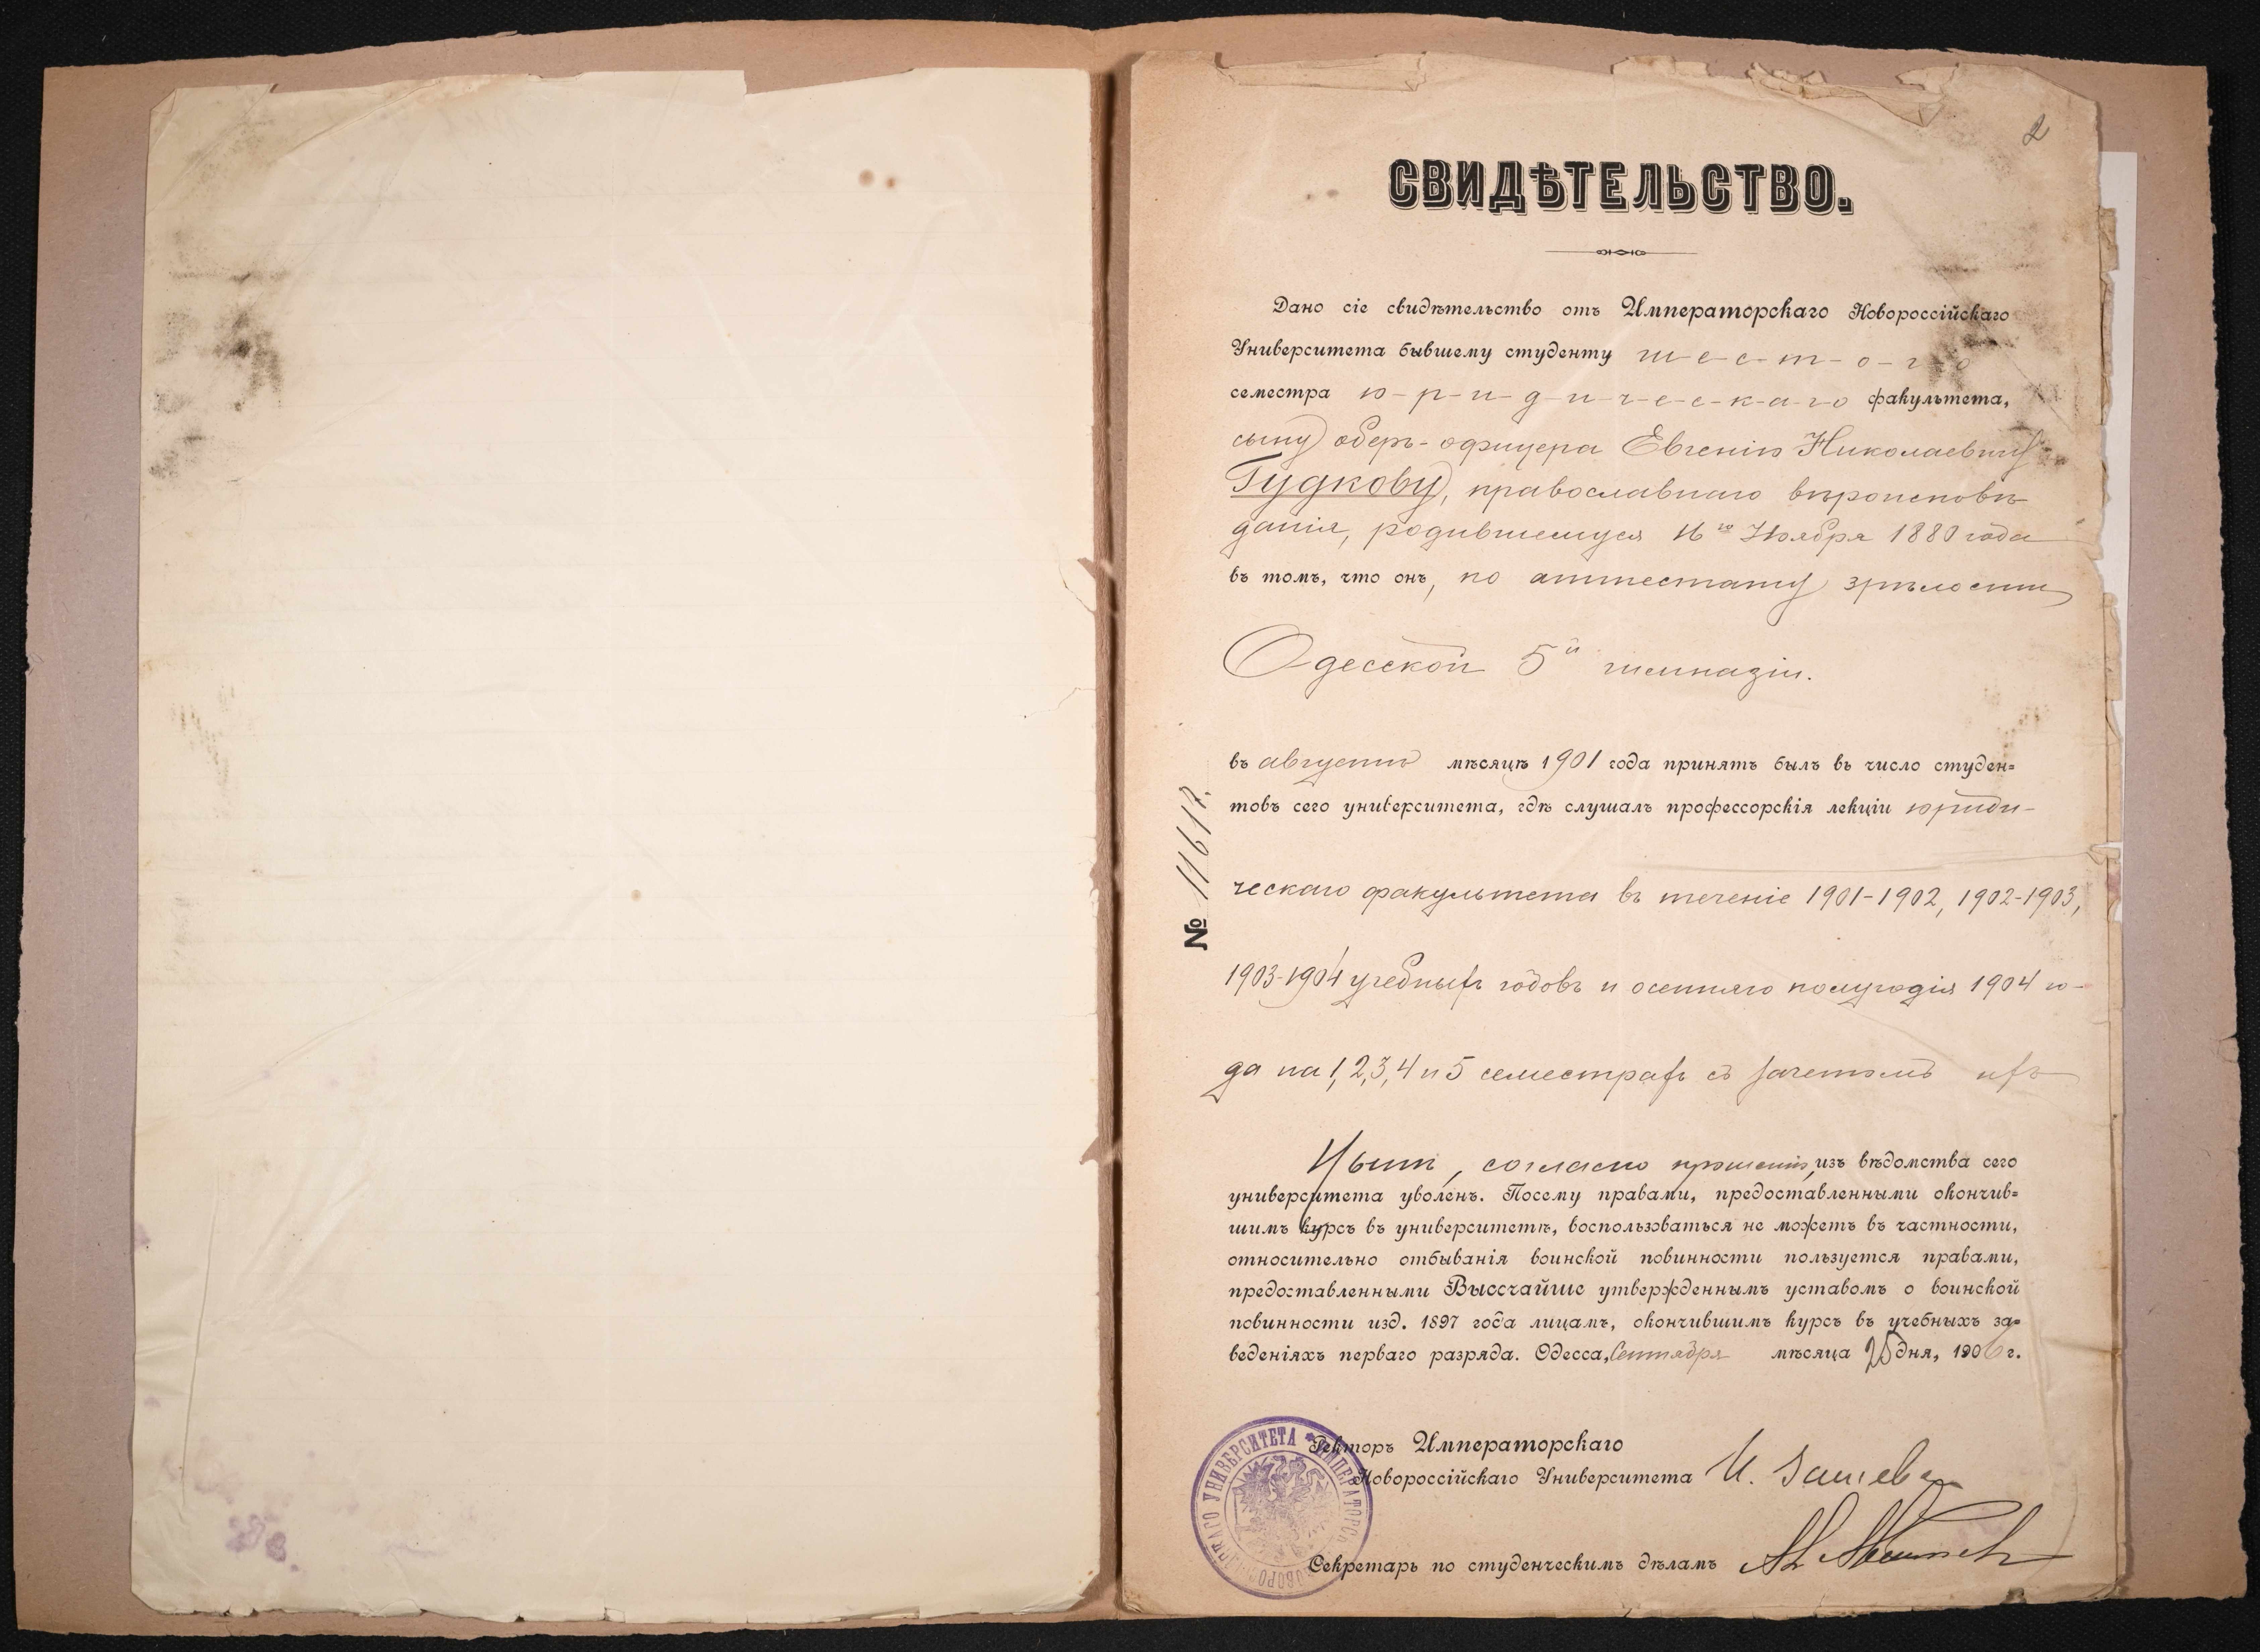 2
СВИДѢТЕЛЬСТВО.
Дано сіе свидѣтельство отъ Императорскаго Новороссійскаго
Университета бывшему студенту ш-е-с-т-о-г-о
семестра ю-р-и-д-и-ч-е-с-к-а-г-о факультета,
сыну оберъ-офицера Евгенію Николаевичу
Гудкову, православнаго вѣроисповѣ-
данія, родившемуся 16го Ноября 1880 года
въ томъ, что онъ, по аттестату зрѣлости
Одесской 5й гимназіи.
въ августѣ мѣсяцѣ 1901 года принятъ былъ въ число студен=
товъ сего университета, гдѣ слушалъ профессорскія лекціи юриди-
ческаго факультета въ теченіе 1901-1902, 1902-1903,
1903-1904 учебныхъ годовъ и осенняго полугодія 1904 го-
да на 1, 2, 3, 4 и 5 семестрахъ съ зачетомъ ихъ
№ 11617.
Нынѣ, согласно прошенію, изъ вѣдомства сего
университета уволенъ. Посему правами, предоставленными окончив=
шимъ курсъ въ университетѣ, воспользоваться не можетъ въ частности,
относительно отбыванія воинской повинности пользуется правами,
предоставленными Высочайше утвержденнымъ уставомъ о воинской
повинности изд. 1897 года лицамъ, окончившимъ курсъ въ учебныхъ за=
веденіяхъ перваго разряда. Одесса, Сентября мѣсяца 25 дня, 1906 г.
Ректоръ Императорскаго
Новороссійскаго Университета И. Занчевскій
Секретарь по студенческимъ дѣламъ
ИМПЕРАТОРСКАГО НОВОРОССІЙСКАГО УНИВЕРСИТЕТА